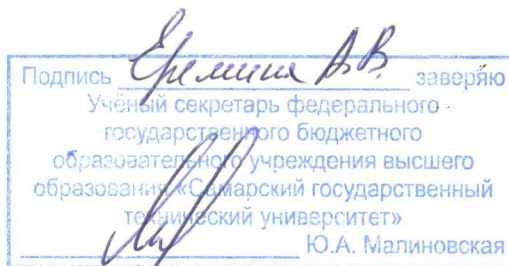 Подпись Еремина А.В. заверяю
Учёный секретарь федерального
государственного бюджетного
образовательного учреждения высшего
образования «Самарский государственный
технический университет»
Ю.А. Малиновская